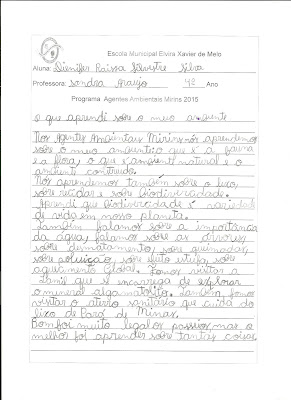 Escola Municipal Elvira Xavier de Melo
Aluna: Dienifer Raissa Silvestre Silva
Professora: Sandra Araujo 4º Ano
Programa Agentes Ambientais Mirins 2015
o que aprendi sobre o meu ambiente
Nos Agentes Ambientais Mirins nós aprendemos
sobre o meu ambiente, o que é a fauna
e a flora, o que é ambiente natural e o
ambiente construido.
Nós aprendemos também sobre o lixo,
sobre e sobre Biodiversidade.
Aprendi que Biodiversidade é variedade
de vida em nosso planeta.
Também falamos sobre a importância
da água, falamos sobre as árvores
sobre desmatamento, sobre queimadas,
sobre poluição, sobre efeito estufa, sobre
aquecimento Global. Fomos visitar a
que se encarrega de explorar
o mineral Também fomos
visitar o aterro sanitário que cuida do
lixo de Pará de Minas.
Bom foi muito legal os passios, mas o
melhor foi aprender sobre tantas coisas.